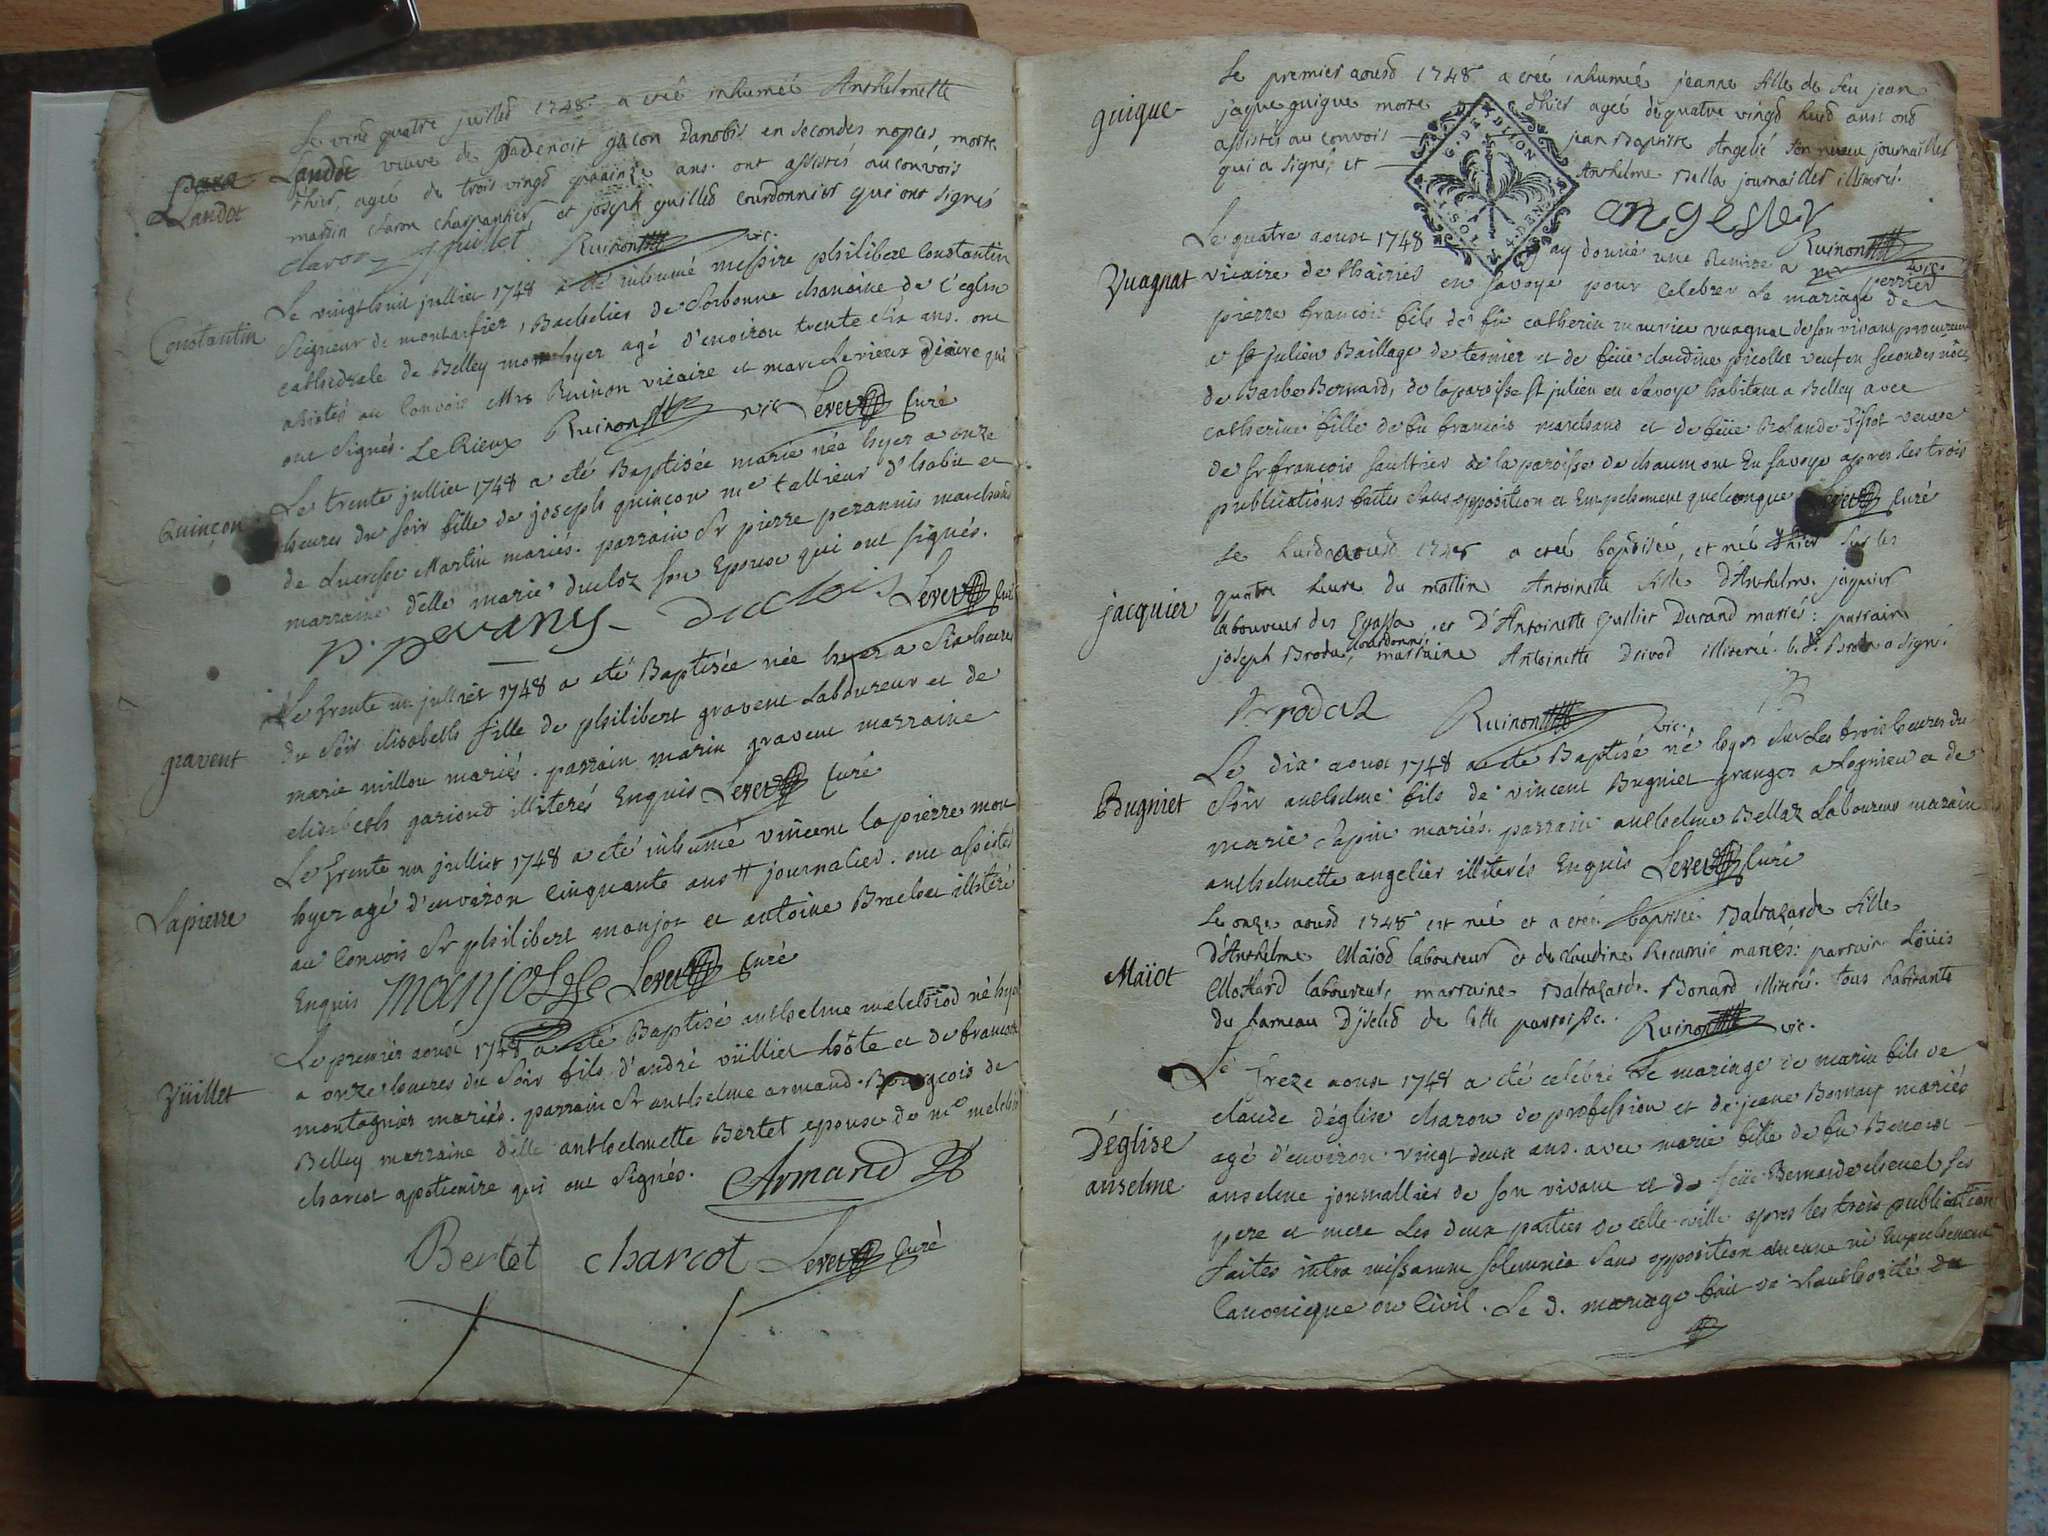 Le vend quatre juilled 1748 a eté inhumeé Anthelmette
Landot
Landot veuve de gacon Danobis en secondes nopces morte
d'hier, ageé de trois vingd ans. ont assistés au convois
martin charon charpantier, et joseph guilled courdonnier qui ont signés
charon J guillet Ruinon vic.
Constantin
Le vingt huit jullier 1748 a eté inhumé messire philibert Constantin
Seigneur de , Bachelier de Sorbonne chanoine de l'eglise
cathedrale de Belley mort hyer agé d'environ trente six ans. ont
assistés au Convois Mrs Ruinon vicaire et marc Lerieux Diacre qui
ont signés. Le Rieux Ruinon vic Leret Curé
Quinçon
Le trente jullier 1748 a eté Baptisée marie née hyer a onze
heures du soir fille de joseph quinçon me tallieur d'habit et
de Lucresse Martin mariés. parrain Sr pierre peranuis marchand
marraine delle marie ducloz son Epouse qui ont signés.
P. Duclois Leret Curé
gravent
Le Trente un julliet 1748 a eté Baptisée née hyer a six heures
du soir elisabeth fille de philibert gravent Laboureur et de
marie millou mariés. parrain marin gravent marraine
elisabeth gariond illiterés Enquis Leret Curé
Lapierre
Le Trente un julliet 1748 a eté inhumé vincent lapierre mort
hyer agé d'environ Cinquante ans journalier. ont assistés
au Convois Sr philibert manjot et antoine illitéré
Enquis manjot Leret Curé
Vüillet
Le premier aoust 1748 a eté Baptisé anthelme né hyer
a onze heures du soir fils d'andré vüilliet hôte et de francoise
montagnier mariés. parrain Sr anthelme armand Bourgeois de
Belley marraine delle anthelmette Bertet epouse de me
charcot apoticaire qui ont signés. Armand
Bertet charcot Leret Curé
guigue
Le premier aousd 1748 a eteé inhumeé jeanne fille de feu jean
jaque guigue morte d'hier ageé de quatre vingd huid ans: ond
assistés au convois jean Baptiste Angelié son neveu journallier
qui a signé, et Anthelme Bella journallier illiteres.
G. DE DIJON
angelier
Ruinon vic.
Vuagnat
Le quatre aoust 1748 j'ay donné une Remise a mr perrier
vicaire de thairies en savoye pour Celebrer Le mariage de
pierre francois fils de fû catherin maurice vuagnat de son vivant procureur
a st julien Baillage de ternier et de feüe claudine picollet veuf en secondes nôces
de Barbe Bernard, de la paroisse st julien en savoye habitant a Belley avec
catherine fille de fû francois marchand et de feüe Rolande Tissot veuve
de Sr francois Saultier de la paroisse de chaumont En savoye apres les trois
publications faites sans opposition et Empechement quelconque Leret Curé
jacquier
Le huid aousd 1748 a eteé baptisée, et neé d'hier sur les
quatre heure du mattin Antoinette fille d'Anthelme jaquier
laboureur des Ecassa et d'Antoinette Cullier Durand mariés: parrain
joseph Broda, courdonnier marraine Antoinette Drivod illiterée. led. Broda a signé.
Brodaz Ruinon vic.
Bugniet
Le dix aoust 1748 a eté Baptisé né hyer sur Les trois heures du
soir anthelme fils de vincent Bugniet granger a Lognieu et de
marie Capin mariés. parrain anthelme Bellaz Laboureur maraine
anthelmette angelier illiterés Enquis Leret Curé
Maïot
Le onze aousd 1748 est née et a eteé baptisée Baltazarde fille
d'Anthelme Maïod laboureur et de claudine Récamié mariés: parrain Loüis
Mottard laboureur, marraine Baltazarde Bonard illiteré. tous habitants
du hameau D'iseled de cette parroisse. Ruinon vic.
D'église
anselme
Le Treze aoust 1748 a eté celebré Le mariage de marin fils de
claude d'église charon de profession et de jeane Bonnay mariés
agé d'environ vingt deux ans. avec marie fille de fû Benoist
anselme journallier de son vivant et de feüe Bernarde ses
pere et mere Les deux parties de cette ville apres les trois publications
faites intra missarum solemnia sans opposition aucune ni Empechement
Canonique ou Civil. Le d. mariage fait de L'authorité du